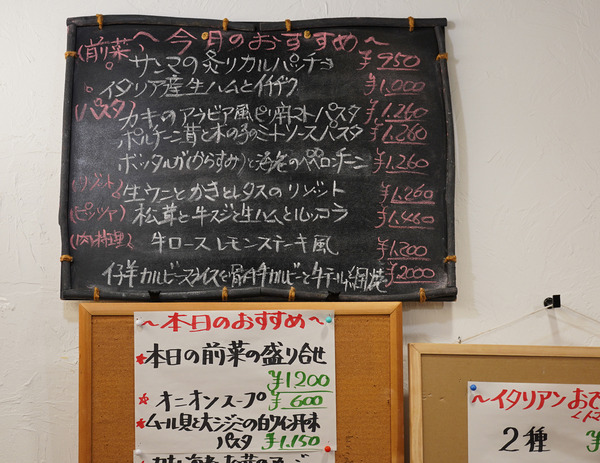 〜今日のおすすめ〜
(前菜)
サンマの炙りカルパッチョ ¥950
イタリア産生ハムとイチヂク ¥1,000
(パスタ)
カキのアラビア風ピリ辛トマトパスタ ¥1,260
ポルチーニ茸と木の子のミートソースパスタ ¥1,260
ボッタルガ(からすみ)と海老のペペロンチーニ ¥1,260
(リゾット) 生ウニとかきとレタスのリゾット ¥1,260
(ピッツァ) 松茸と牛スジと生ハムとルッコラ ¥1,460
(肉料理) 牛ロースレモンステーキ風 ¥1,200
仔羊カルビース 骨付牛カルビーと牛テール 網焼 ¥2000
〜本日のおすすめ〜
★本日の前菜の盛り合せ
¥1,200
★オニオンスープ ¥600
★ムール貝と大ジミの白ワイン風味
パスタ ¥1,150
〜イタリアンおで
2種 ¥